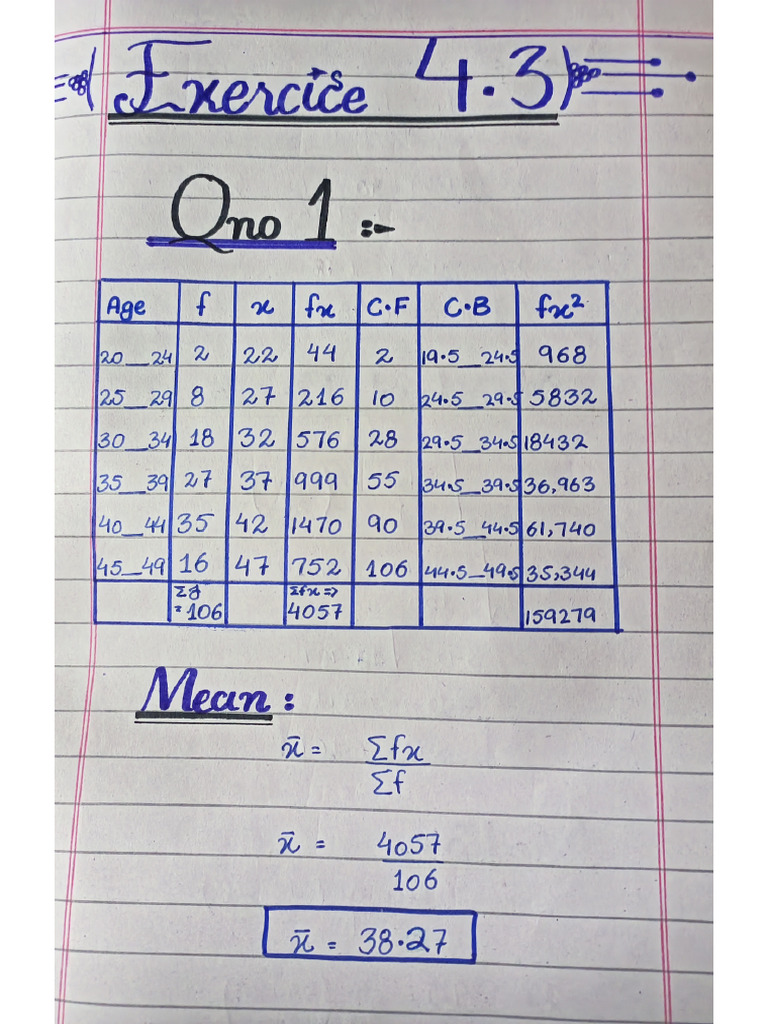 Exercise 4.3
Qno 1 :-
Age f x fx C.F C.B fx²
20__24 2 22 44 2 19.5__24.5 968
25__29 8 27 216 10 24.5__29.5 5832
30__34 18 32 576 28 29.5__34.5 18432
35__39 27 37 999 55 34.5__39.5 36,963
40__44 35 42 1470 90 39.5__44.5 61,740
45__49 16 47 752 106 44.5__49.5 35,344
Σf = 106 Σfx => 4057 159279
Mean :
x̄ = Σfx
Σf
x̄ = 4057
106
x̄ = 38.27